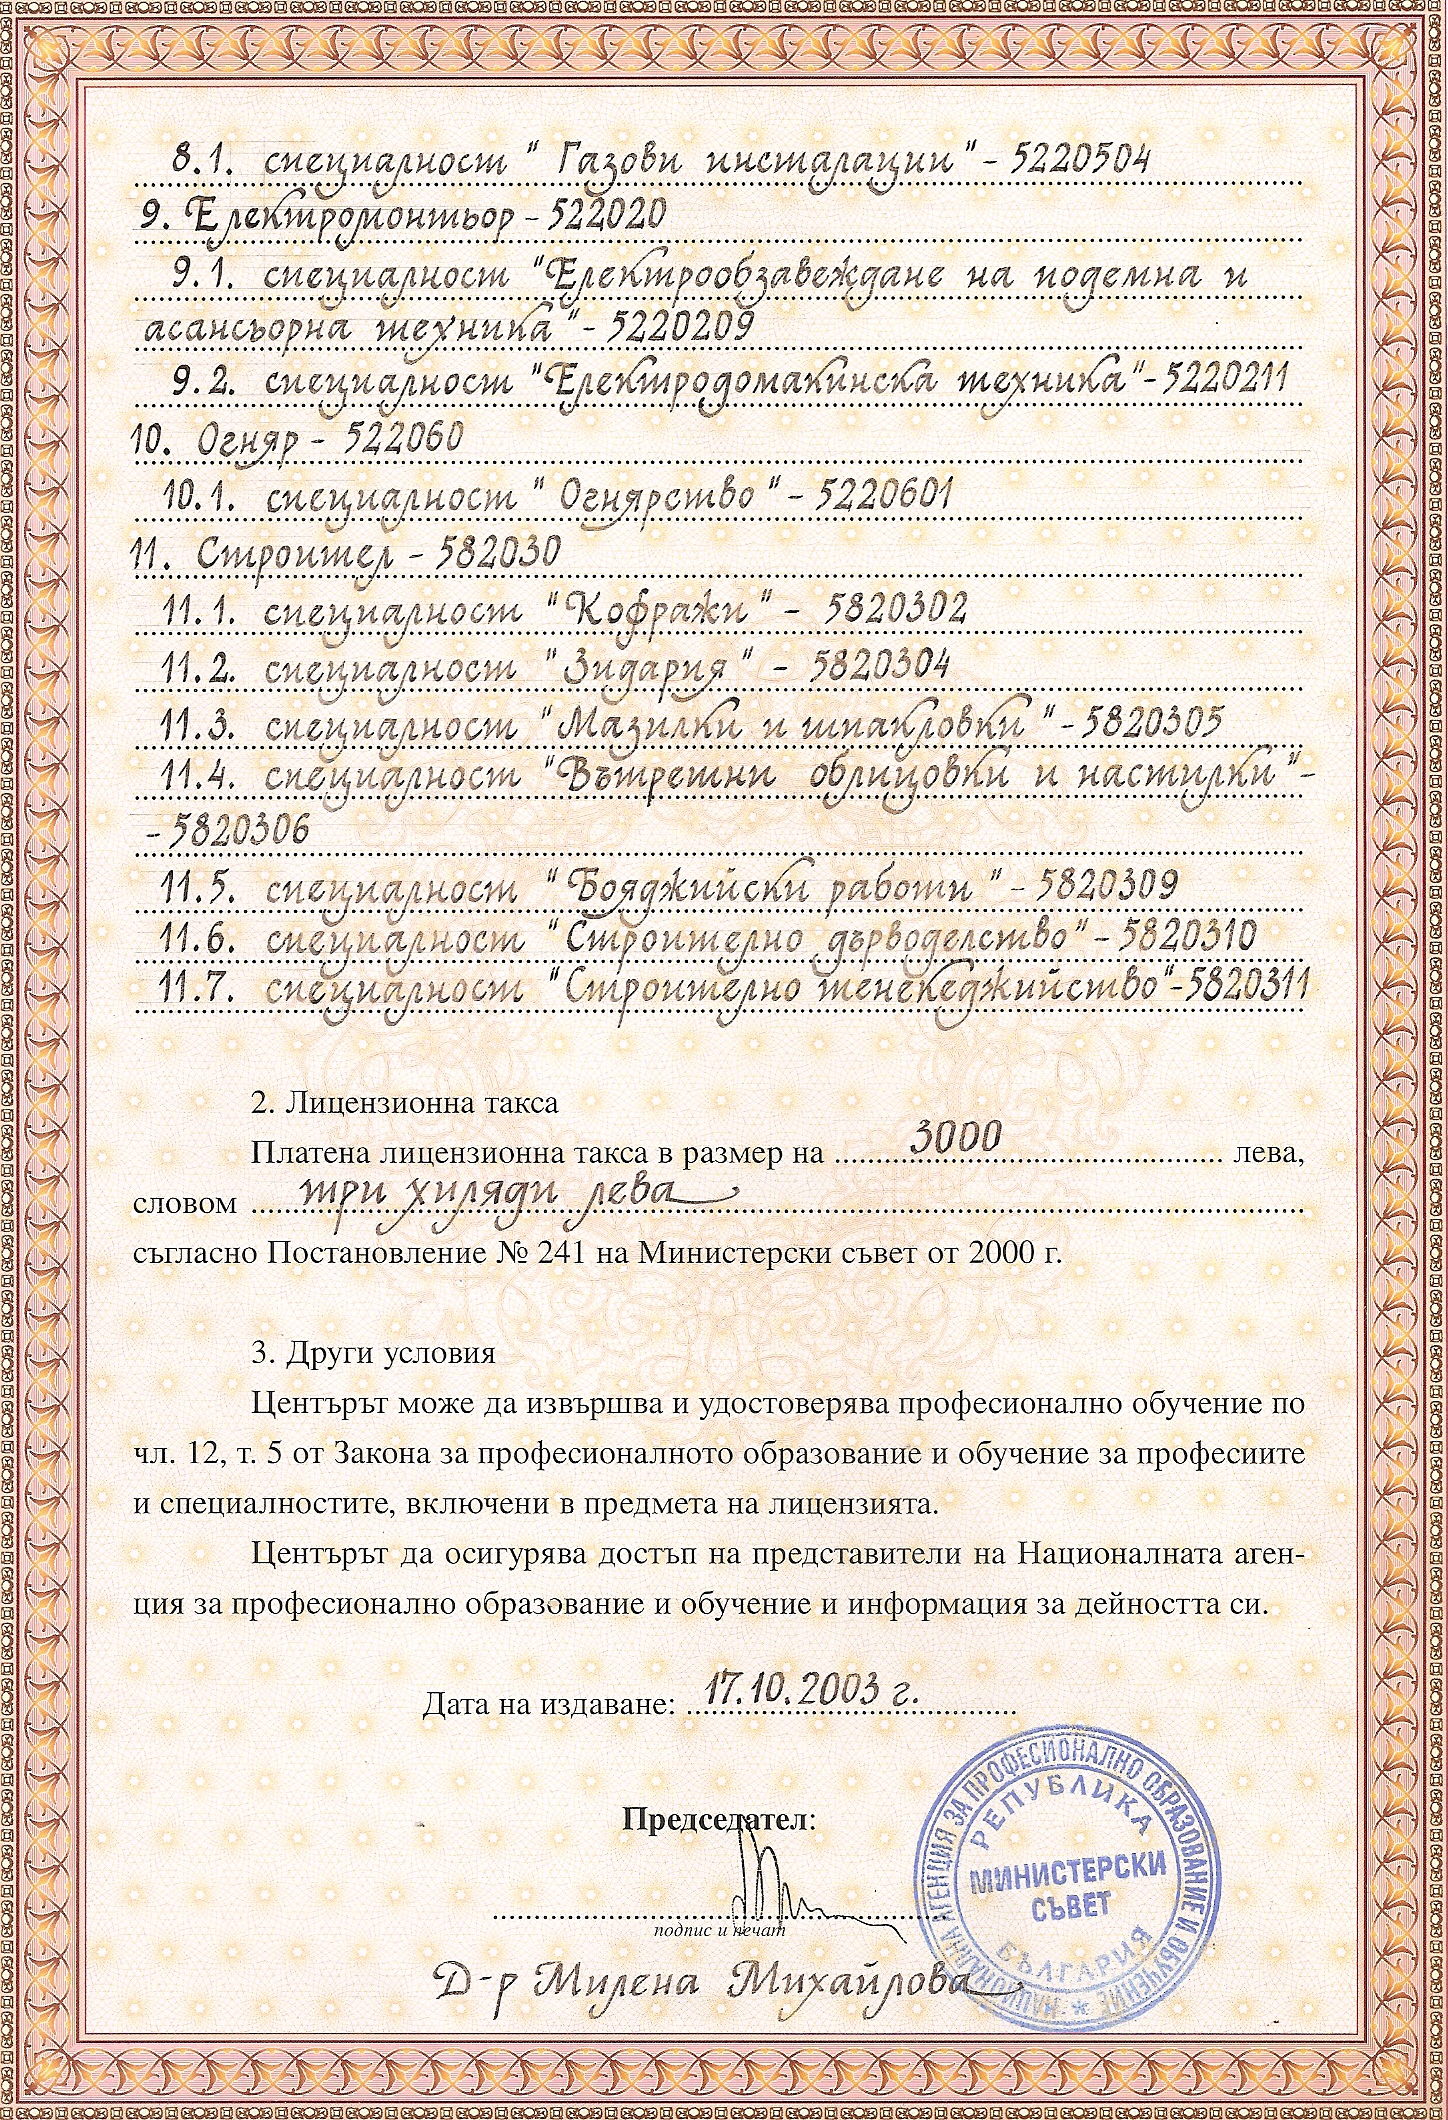 8.1. специалност " Газови инсталации" - 5220504
9. Електромонтьор - 522020
9.1. специалност "Електрообзавеждане на подемна и
асансьорна техника" - 5220209
9.2. специалност "Електродомакинска техника" - 5220211
10. Огняр - 522060
10.1. специалност " Огнярство " - 5220601
11. Строител - 582030
11.1. специалност "Кофражи " - 5820302
11.2. специалност " Зидария " - 5820304
11.3. специалност "Мазилки и шпакловки " - 5820305
11.4. специалност "Вътрешни облицовки и настилки" -
- 5820306
11.5. специалност " Бояджийски работи " - 5820309
11.6. специалност "Строително дърводелство" - 5820310
11.7. специалност "Строително тенекеджийство" - 5820311
2. Лицензионна такса
Платена лицензионна такса в размер на 3000 лева,
словом три хиляди лева
съгласно Постановление № 241 на Министерски съвет от 2000 г.
3. Други условия
Центърът може да извършва и удостоверява професионално обучение по
чл. 12, т. 5 от Закона за професионалното образование и обучение за професиите
и специалностите, включени в предмета на лицензията.
Центърът да осигурява достъп на представители на Националната аген-
ция за професионално образование и обучение и информация за дейността си.
Дата на издаване: 17.10.2003 г.
Председател:
подпис и печат
Д-р Милена Михайлова
НАЦИОНАЛНА АГЕНЦИЯ ЗА ПРОФЕСИОНАЛНО ОБРАЗОВАНИЕ И ОБУЧЕНИЕ *
РЕПУБЛИКА
МИНИСТЕРСКИ
СЪВЕТ
БЪЛГАРИЯ